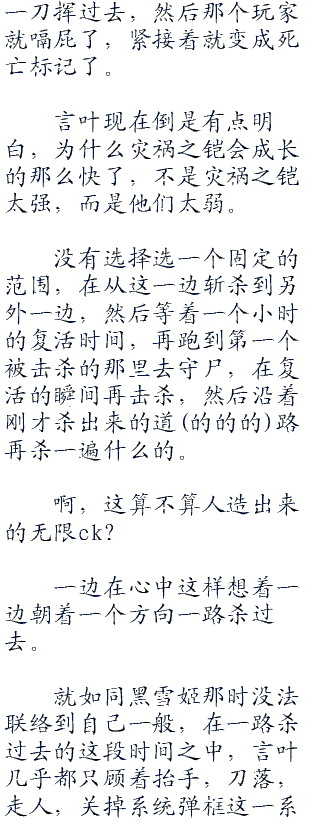 一刀挥过去，然后那个玩家
就嗝屁了，紧接着就变成死
亡标记了。
言叶现在倒是有点明
白，为什么灾祸之铠会成长
的那么快了，不是灾祸之铠
太强，而是他们太弱。
没有选择选一个固定的
范围，在从这一边斩杀到另
外一边，然后等着一个小时
的复活时间，再跑到第一个
被击杀的那里去守尸，在复
活的瞬间再击杀，然后沿着
刚才杀出来的道(的的的)路
再杀一遍什么的。
啊，这算不算人造出来
的无限ck？
一边在心中这样想着一
边朝着一个方向一路杀过
去。
就如同黑雪姬那时没法
联络到自己一般，在一路杀
过去的这段时间之中，言叶
几乎都只顾着抬手，刀落，
走人，关掉系统弹框这一系